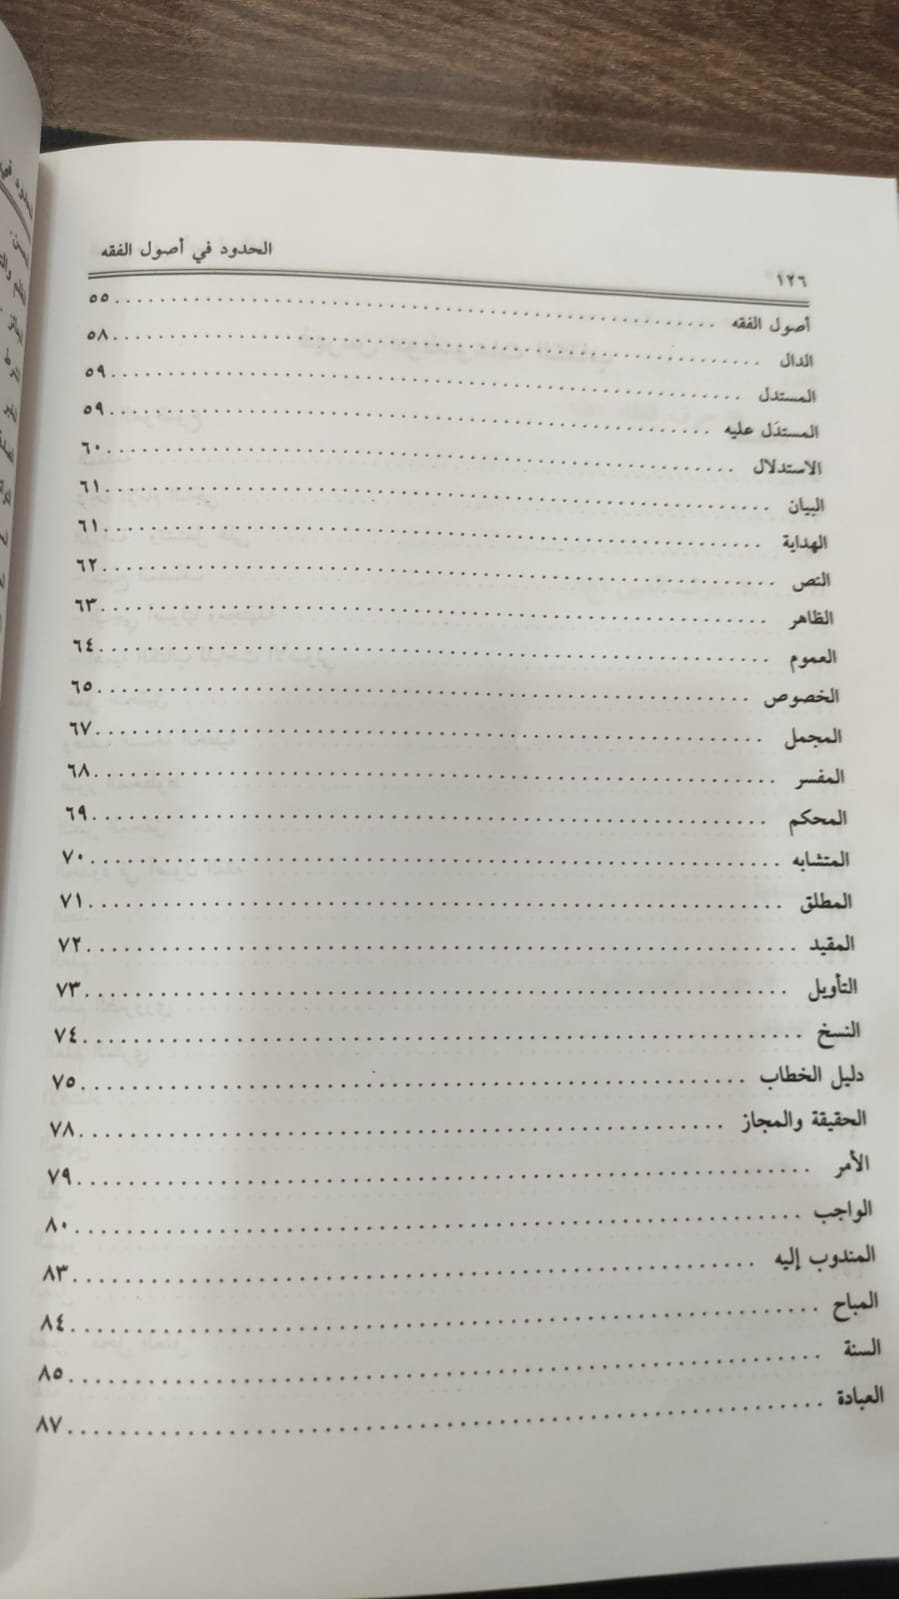 ١٢٦ الحدود في أصول الفقه
أصول الفقه ٥٥
الدال ٥٨
المستدل ٥٩
المستدَل عليه ٥٩
الاستدلال ٦٠
البيان ٦١
الهداية ٦١
النص ٦٢
الظاهر ٦٣
العموم ٦٤
الخصوص ٦٥
المجمل ٦٧
المفسر ٦٨
المحكم ٦٩
المتشابه ٧٠
المطلق ٧١
المقيد ٧٢
التأويل ٧٣
النسخ ٧٤
دليل الخطاب ٧٥
الحقيقة والمجاز ٧٨
الأمر ٧٩
الواجب ٨٠
المندوب إليه ٨٣
المباح ٨٤
السنة ٨٥
العبادة ٨٧